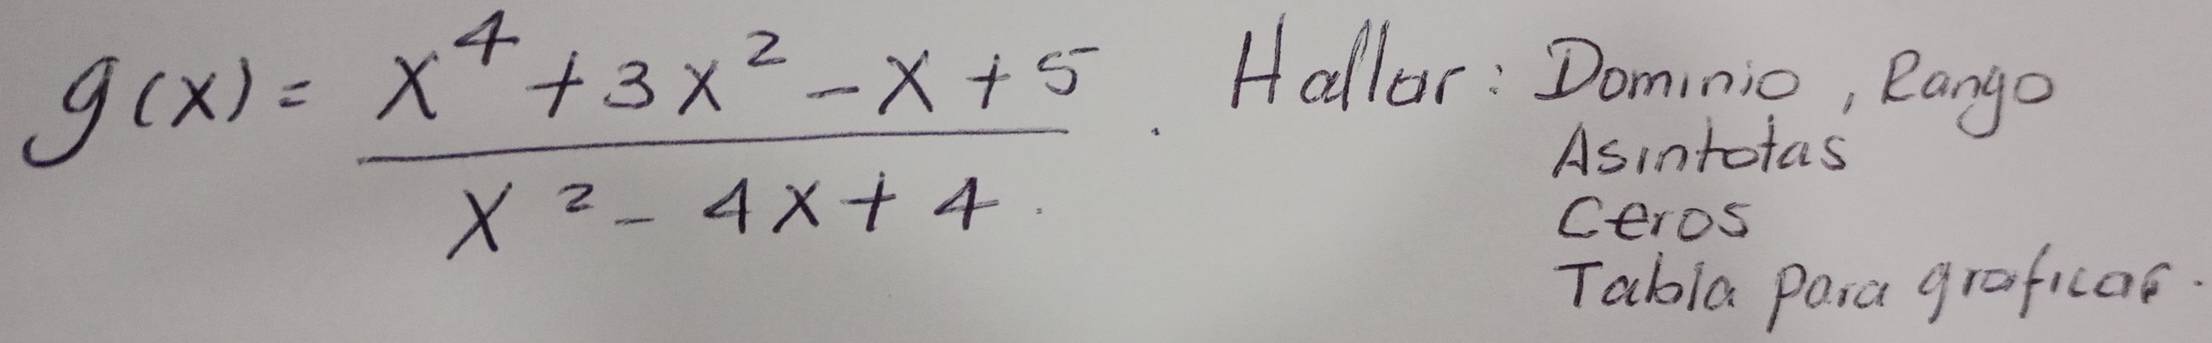 g(x) = x^4 + 3x^2 - x + 5 / x^2 - 4x + 4 . Hallar: Dominio, Rango
Asintotas
Ceros
Tabla para graficar.